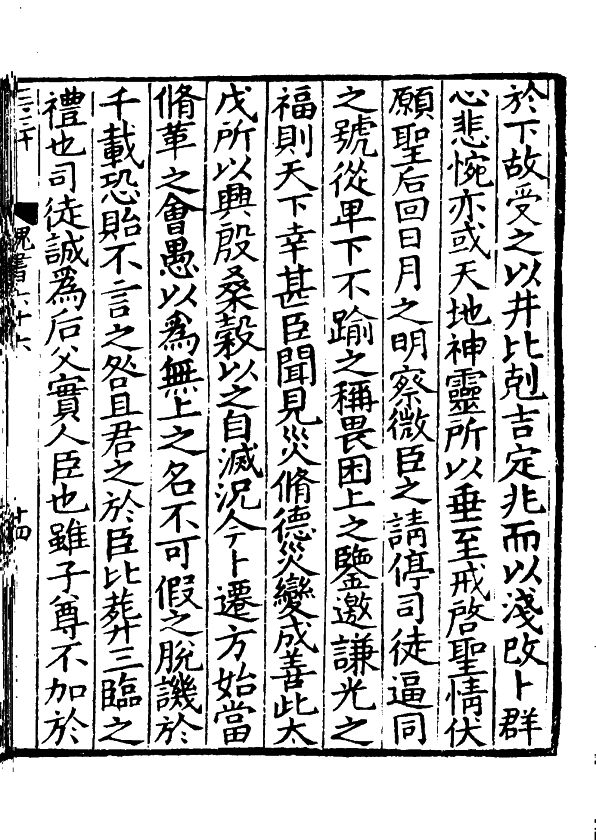 於下故受之以井比剋吉定兆而以淺改卜群
心悲惋亦或天地神靈所以垂至戒啓聖情伏
願聖后回日月之明察微臣之請停司徒逼同
之號從卑下不踰之稱畏困上之鑒邀謙光之
福則天下幸甚臣聞見災脩德災變成善此太
戊所以興殷桑榖以之自滅況今卜遷方始當
脩革之會愚以為無上之名不可假之脫譏於
千載恐貽不言之咎且君之於臣比葬三臨之
禮也司徒誠為后父實人臣也雖子尊不加於
魏書六十六
十四